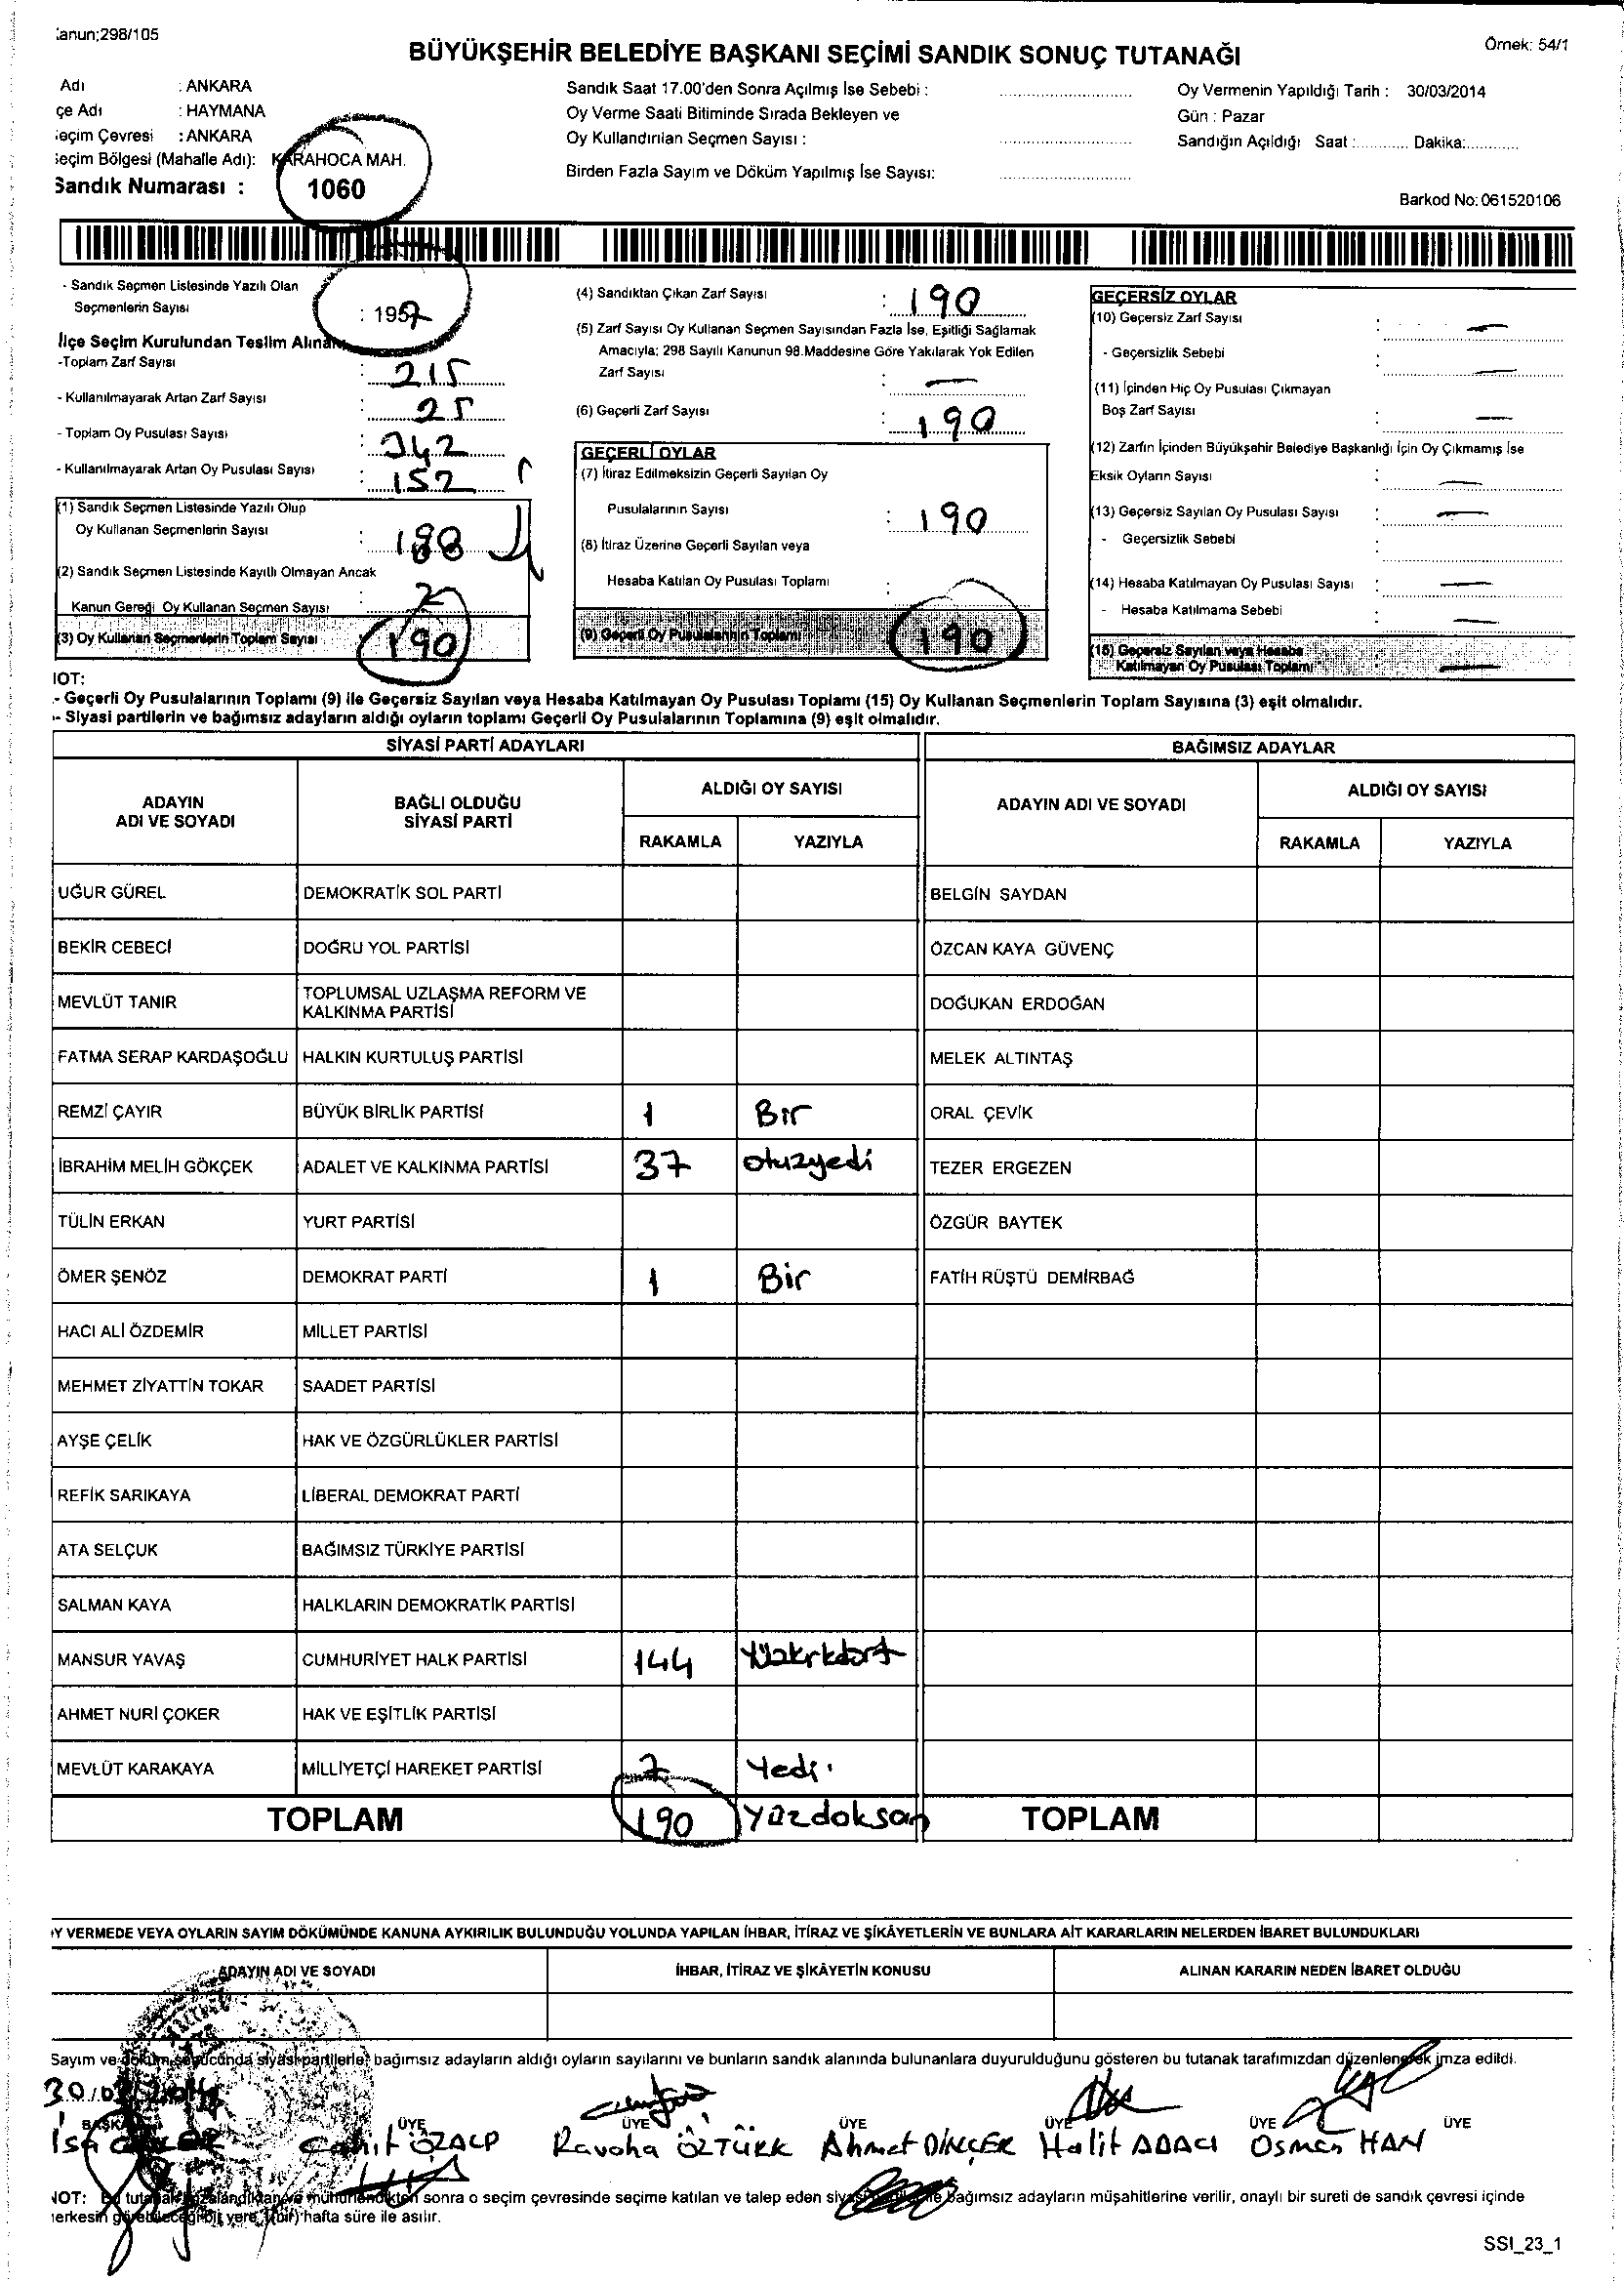 Kanun;298/105
Örnek: 54/1
BÜYÜKŞEHİR BELEDİYE BAŞKANI SEÇİMİ SANDIK SONUÇ TUTANAĞI
Adı : ANKARA
çe Adı : HAYMANA
eçim Çevresi : ANKARA
eçim Bölgesi (Mahalle Adı): KARAHOCA MAH.
Sandık Numarası : 1060
Sandık Saat 17.00'den Sonra Açılmış İse Sebebi :
Oy Verme Saati Bitiminde Sırada Bekleyen ve
Oy Kullandırılan Seçmen Sayısı :
Birden Fazla Sayım ve Döküm Yapılmış İse Sayısı:
Oy Vermenin Yapıldığı Tarih : 30/03/2014
Gün : Pazar
Sandığın Açıldığı Saat :............ Dakika:............
Barkod No: 061520106
- Sandık Seçmen Listesinde Yazılı Olan
Seçmenlerin Sayısı : 195
İlçe Seçim Kurulundan Teslim Alınan
-Toplam Zarf Sayısı : 215
- Kullanılmayarak Artan Zarf Sayısı : 25
- Toplam Oy Pusulası Sayısı : 342
- Kullanılmayarak Artan Oy Pusulası Sayısı : 152
(1) Sandık Seçmen Listesinde Yazılı Olup
Oy Kullanan Seçmenlerin Sayısı : 188
(2) Sandık Seçmen Listesinde Kayıtlı Olmayan Ancak
Kanun Gereği Oy Kullanan Seçmen Sayısı : 2
(3) Oy Kullanan Seçmenlerin Toplam Sayısı 190
(4) Sandıktan Çıkan Zarf Sayısı : 190
(5) Zarf Sayısı Oy Kullanan Seçmen Sayısından Fazla İse, Eşitliği Sağlamak
Amacıyla; 298 Sayılı Kanunun 98.Maddesine Göre Yakılarak Yok Edilen
Zarf Sayısı : —
(6) Geçerli Zarf Sayısı : 190
GEÇERLİ OYLAR
(7) İtiraz Edilmeksizin Geçerli Sayılan Oy
Pusulalarının Sayısı : 190
(8) İtiraz Üzerine Geçerli Sayılan veya
Hesaba Katılan Oy Pusulası Toplamı : —
(9) Geçerli Oy Pusulalarının Toplamı 190
GEÇERSİZ OYLAR
(10) Geçersiz Zarf Sayısı : —
- Geçersizlik Sebebi : —
(11) İçinden Hiç Oy Pusulası Çıkmayan
Boş Zarf Sayısı : —
(12) Zarfın İçinden Büyükşehir Belediye Başkanlığı İçin Oy Çıkmamış İse
Eksik Oyların Sayısı : —
(13) Geçersiz Sayılan Oy Pusulası Sayısı : —
- Geçersizlik Sebebi :
(14) Hesaba Katılmayan Oy Pusulası Sayısı : —
- Hesaba Katılmama Sebebi : —
(15) Geçersiz Sayılan veya Hesaba
Katılmayan Oy Pusulası Toplamı —
NOT:
- Geçerli Oy Pusulalarının Toplamı (9) ile Geçersiz Sayılan veya Hesaba Katılmayan Oy Pusulası Toplamı (15) Oy Kullanan Seçmenlerin Toplam Sayısına (3) eşit olmalıdır.
- Siyasi partilerin ve bağımsız adayların aldığı oyların toplamı Geçerli Oy Pusulalarının Toplamına (9) eşit olmalıdır.
SİYASİ PARTİ ADAYLARI BAĞIMSIZ ADAYLAR
ADAYIN ADI VE SOYADI BAĞLI OLDUĞU SİYASİ PARTİ ALDIĞI OY SAYISI ADAYIN ADI VE SOYADI ALDIĞI OY SAYISI
RAKAMLA YAZIYLA RAKAMLA YAZIYLA
UĞUR GÜREL DEMOKRATİK SOL PARTİ BELGİN SAYDAN
BEKİR CEBECİ DOĞRU YOL PARTİSİ ÖZCAN KAYA GÜVENÇ
MEVLÜT TANIR TOPLUMSAL UZLAŞMA REFORM VE KALKINMA PARTİSİ DOĞUKAN ERDOĞAN
FATMA SERAP KARDAŞOĞLU HALKIN KURTULUŞ PARTİSİ MELEK ALTINTAŞ
REMZİ ÇAYIR BÜYÜK BİRLİK PARTİSİ 1 Bir ORAL ÇEVİK
İBRAHİM MELİH GÖKÇEK ADALET VE KALKINMA PARTİSİ 37 otuzyedi TEZER ERGEZEN
TÜLİN ERKAN YURT PARTİSİ ÖZGÜR BAYTEK
ÖMER ŞENÖZ DEMOKRAT PARTİ 1 Bir FATİH RÜŞTÜ DEMİRBAĞ
HACI ALİ ÖZDEMİR MİLLET PARTİSİ
MEHMET ZİYATTİN TOKAR SAADET PARTİSİ
AYŞE ÇELİK HAK VE ÖZGÜRLÜKLER PARTİSİ
REFİK SARIKAYA LİBERAL DEMOKRAT PARTİ
ATA SELÇUK BAĞIMSIZ TÜRKİYE PARTİSİ
SALMAN KAYA HALKLARIN DEMOKRATİK PARTİSİ
MANSUR YAVAŞ CUMHURİYET HALK PARTİSİ 144
AHMET NURİ ÇOKER HAK VE EŞİTLİK PARTİSİ
MEVLÜT KARAKAYA MİLLİYETÇİ HAREKET PARTİSİ 7 Yedi
TOPLAM 190 Yüzdoksan TOPLAM
OY VERMEDE VEYA OYLARIN SAYIM DÖKÜMÜNDE KANUNA AYKIRILIK BULUNDUĞU YOLUNDA YAPILAN İHBAR, İTİRAZ VE ŞİKÂYETLERİN VE BUNLARA AİT KARARLARIN NELERDEN İBARET BULUNDUKLARI
ADAYIN ADI VE SOYADI İHBAR, İTİRAZ VE ŞİKÂYETİN KONUSU ALINAN KARARIN NEDEN İBARET OLDUĞU
Sayım ve döküm sonucunda siyasi partilerle, bağımsız adayların aldığı oyların sayılarını ve bunların sandık alanında bulunanlara duyurulduğunu gösteren bu tutanak tarafımızdan düzenlenerek imza edildi.
30/03/2014
BAŞKAN ÜYE ÜYE ÜYE ÜYE ÜYE ÜYE
İsa Cahit ÖZALP Ravoha ÖZTÜRK Ahmet DİNÇER Halit ADACI Osman HAN
NOT: Bu tutanak imzalandıktan ve mühürlendikten sonra o seçim çevresinde seçime katılan ve talep eden siyasi partilerle bağımsız adayların müşahitlerine verilir, onaylı bir sureti de sandık çevresi içinde
herkesin görebileceği bir yere 1(bir) hafta süre ile asılır.
SSI_23_1